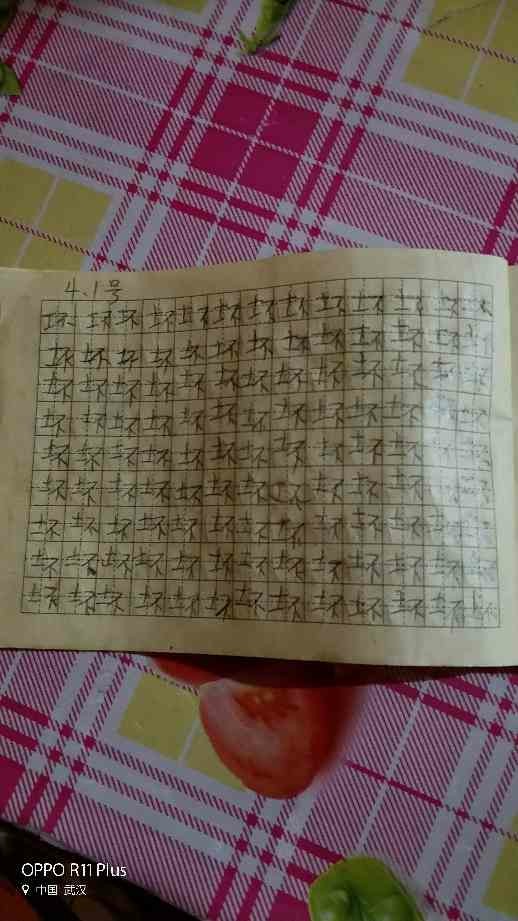 4.1号
坏坏坏坏坏坏坏坏坏坏坏坏坏
坏坏坏坏坏坏坏坏坏坏坏坏坏
坏坏坏坏坏坏坏坏坏坏坏坏坏
坏坏坏坏坏坏坏坏坏坏坏坏坏
坏坏坏坏坏坏坏坏坏坏坏坏坏
坏坏坏坏坏坏坏坏坏坏坏坏坏
坏坏坏坏坏坏坏坏坏坏坏坏坏
坏坏坏坏坏坏坏坏坏坏坏坏坏
坏坏坏坏坏坏坏坏坏坏坏坏坏
OPPO R11 Plus
中国 武汉